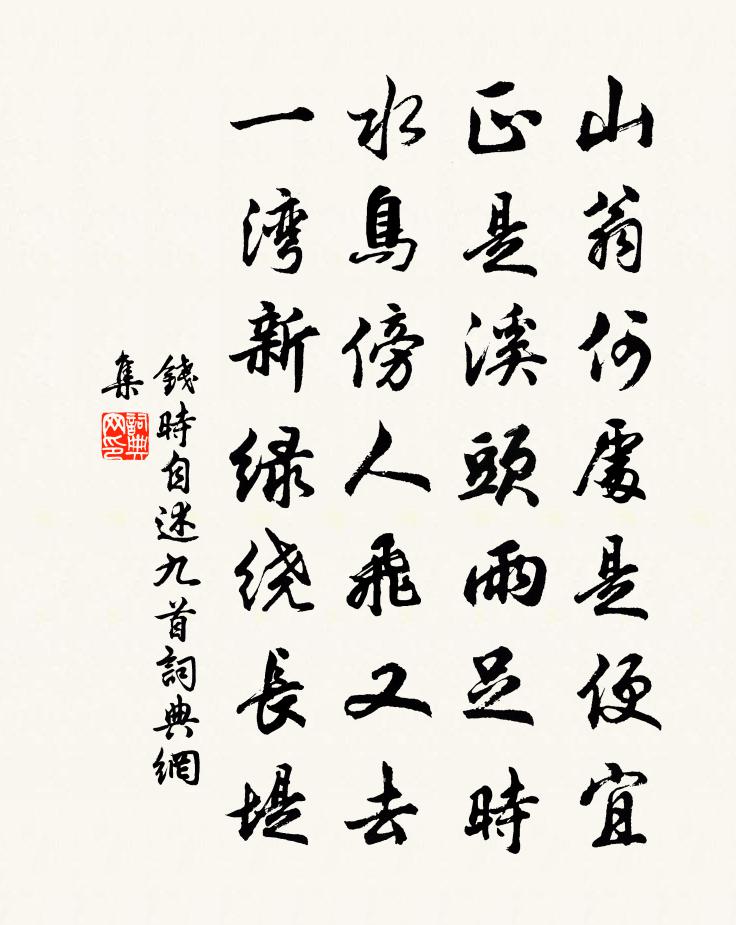 山翁何處是便宜
正是溪頭雨足時
水鳥傍人飛又去
一湾新绿绕長堤
錢時自述九首詞典網
集
詞典
网印